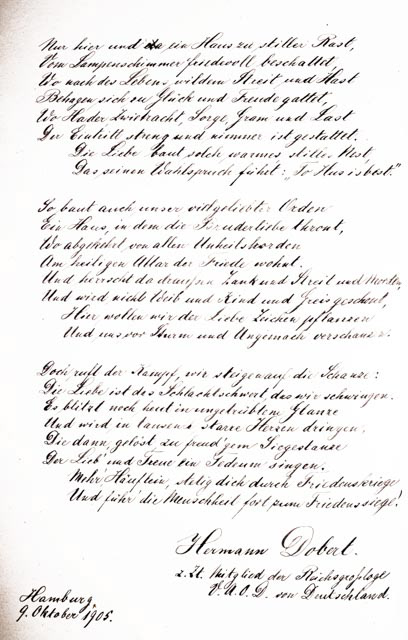 Nur hier und da ein Haus zu stiller Rast,
Vom Lampenschimmer friedevoll beschattet,
Wo nach des Lebens wildem Streit und Hast
Behagen sich zu Glück und Freude gattet,
Wo Hader, Zwietracht, Sorge, Gram und Last
Der Eintritt streng und nimmer ist gestattet.
Die Liebe baut solch warmes stilles Nest,
Das seinen Wahlspruch führt: „To Hus is best."
So baut auch unser vielgeliebter Orden
Ein Haus, in dem die Bruderliebe thront,
Wo abgekehrt von allen Unheilshorden
Am heiligen Altar der Friede wohnt.
Und herrscht da draußen Zank und Streit und Morden,
Und wird nicht Weib und Kind und Greis geschont,
Hier wollen wir der Liebe Zeichen pflanzen
Und uns vor Sturm und Ungemach verschanzen.
Doch ruft der Kampf, wir steigen auf die Schanze:
Die Liebe ist das Schlachtschwert, das wir schwingen.
Es blitzt noch heut in ungetrübtem Glanze
Und wird in tausend starre Herzen dringen,
Die dann, gelöst zu freud'gem Siegestanze
Der Lieb' und Treue ein Tedeum singen.
Mehr' Häuflein, stetig dich durch Friedenskriege
Und führ' die Menschheit fort zum Friedenssiege!
Hermann Dobert.
z. Zt. Mitglied der Reichsgroßloge
V. A. O. D. von Deutschland.
Hamburg,
9. Oktober 1905.